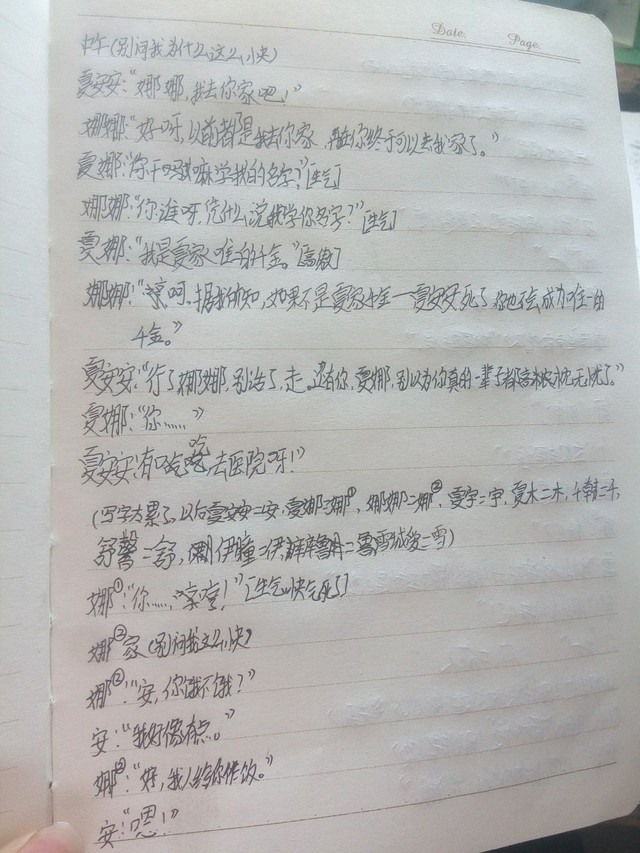 Date. Page.
中午(别问我为什么这么快)
夏安安:“娜娜,我去你家吧!”
娜娜:“好呀,以前都是我去你家,你终于可以去我家了。”
夏娜:“你干嘛学我的名字?”[生气]
娜娜:“你谁呀,凭什么说我学你名字?”[生气]
夏娜:“我是夏家唯一的千金。”[高傲]
娜娜:“呵,据我所知,如果不是夏家千金一夏安安死了,你也不会成为唯一的
千金。”
夏安安:“行了娜娜,别说了,走。还有你,夏娜,别以为你真的一辈子都高枕无忧了。”
夏娜:“你……”
夏安安:有口吃吃去医院呀!”
(写字太累了,以后夏安安=安,夏娜=娜①,娜娜=娜②,夏宇=宇,夏木=木,千韩=千,
舒馨=舒,伊瞳=伊,雪=雪)
娜①:“你……,哼!”[生气,快气死了]
娜②家(别问我这么快)
娜②:“安,你饿不饿?”
安:“我好像有点。”
娜②:“好,我给你作饭。”
安:“嗯!”